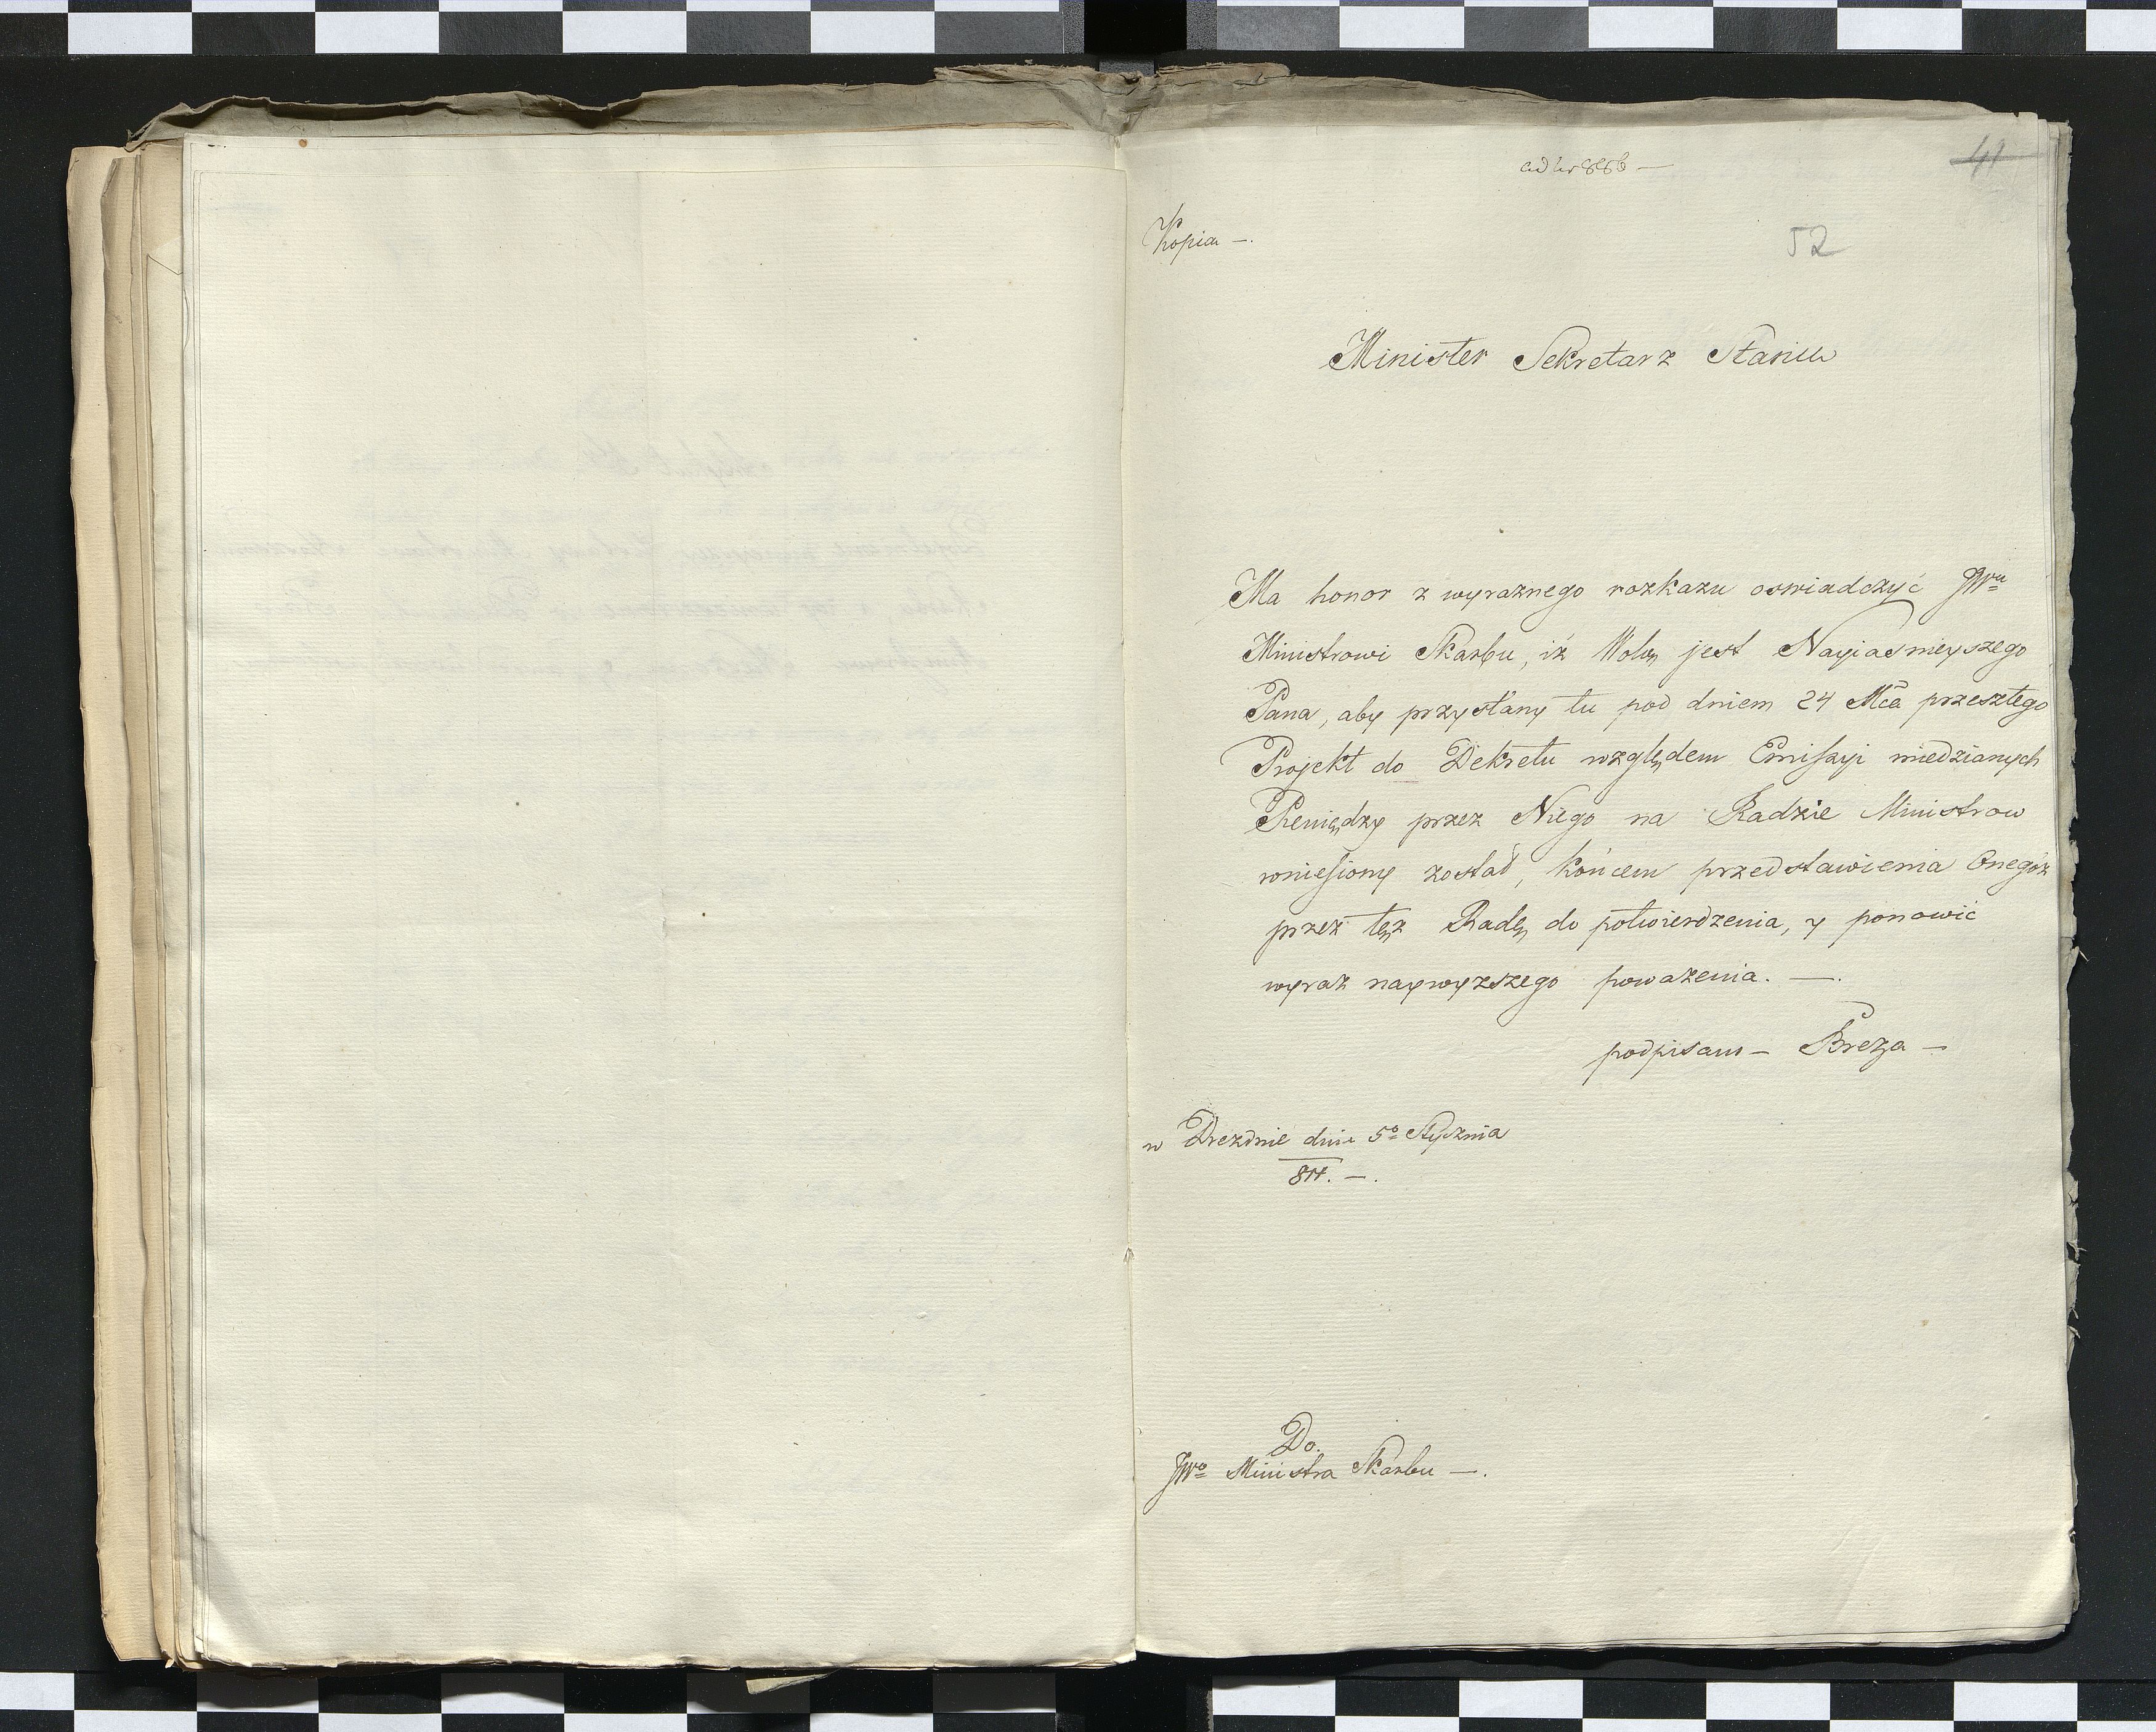 ad Nr 8886 —
41
Kopia —.
52
Minister Sekretarz Stanu
Ma honor z wyraznego rozkazu oswiadczyć JWu
Ministrowi Skarbu, iż Wolą jest Nayiasnieyszego
Pana, aby przysłany tu pod dniem 24 Mca przeszłego
Projekt do Dekretu względem Emissyi miedzianych
Pieniędzy przez Niego na Radzie Ministrow
wniesiony został, końcem przedstawienia Onegoż
przez tęż Radę do potwierdzenia, y ponowić
wyraz naywyzszego poważenia. —.
podpisano — Breza —
w Dreznie dnia 5o Stycznia
811. —.
Do
JWo Ministra Skarbu —.